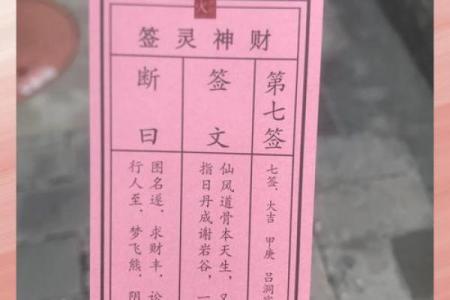 财神灵签
第七签
签文
断曰
七签、大吉 甲庚 吕洞
仙风道骨本天生,又
指日丹成谢岩谷,一
图名遂、求财丰、
行人至、梦飞熊、阴